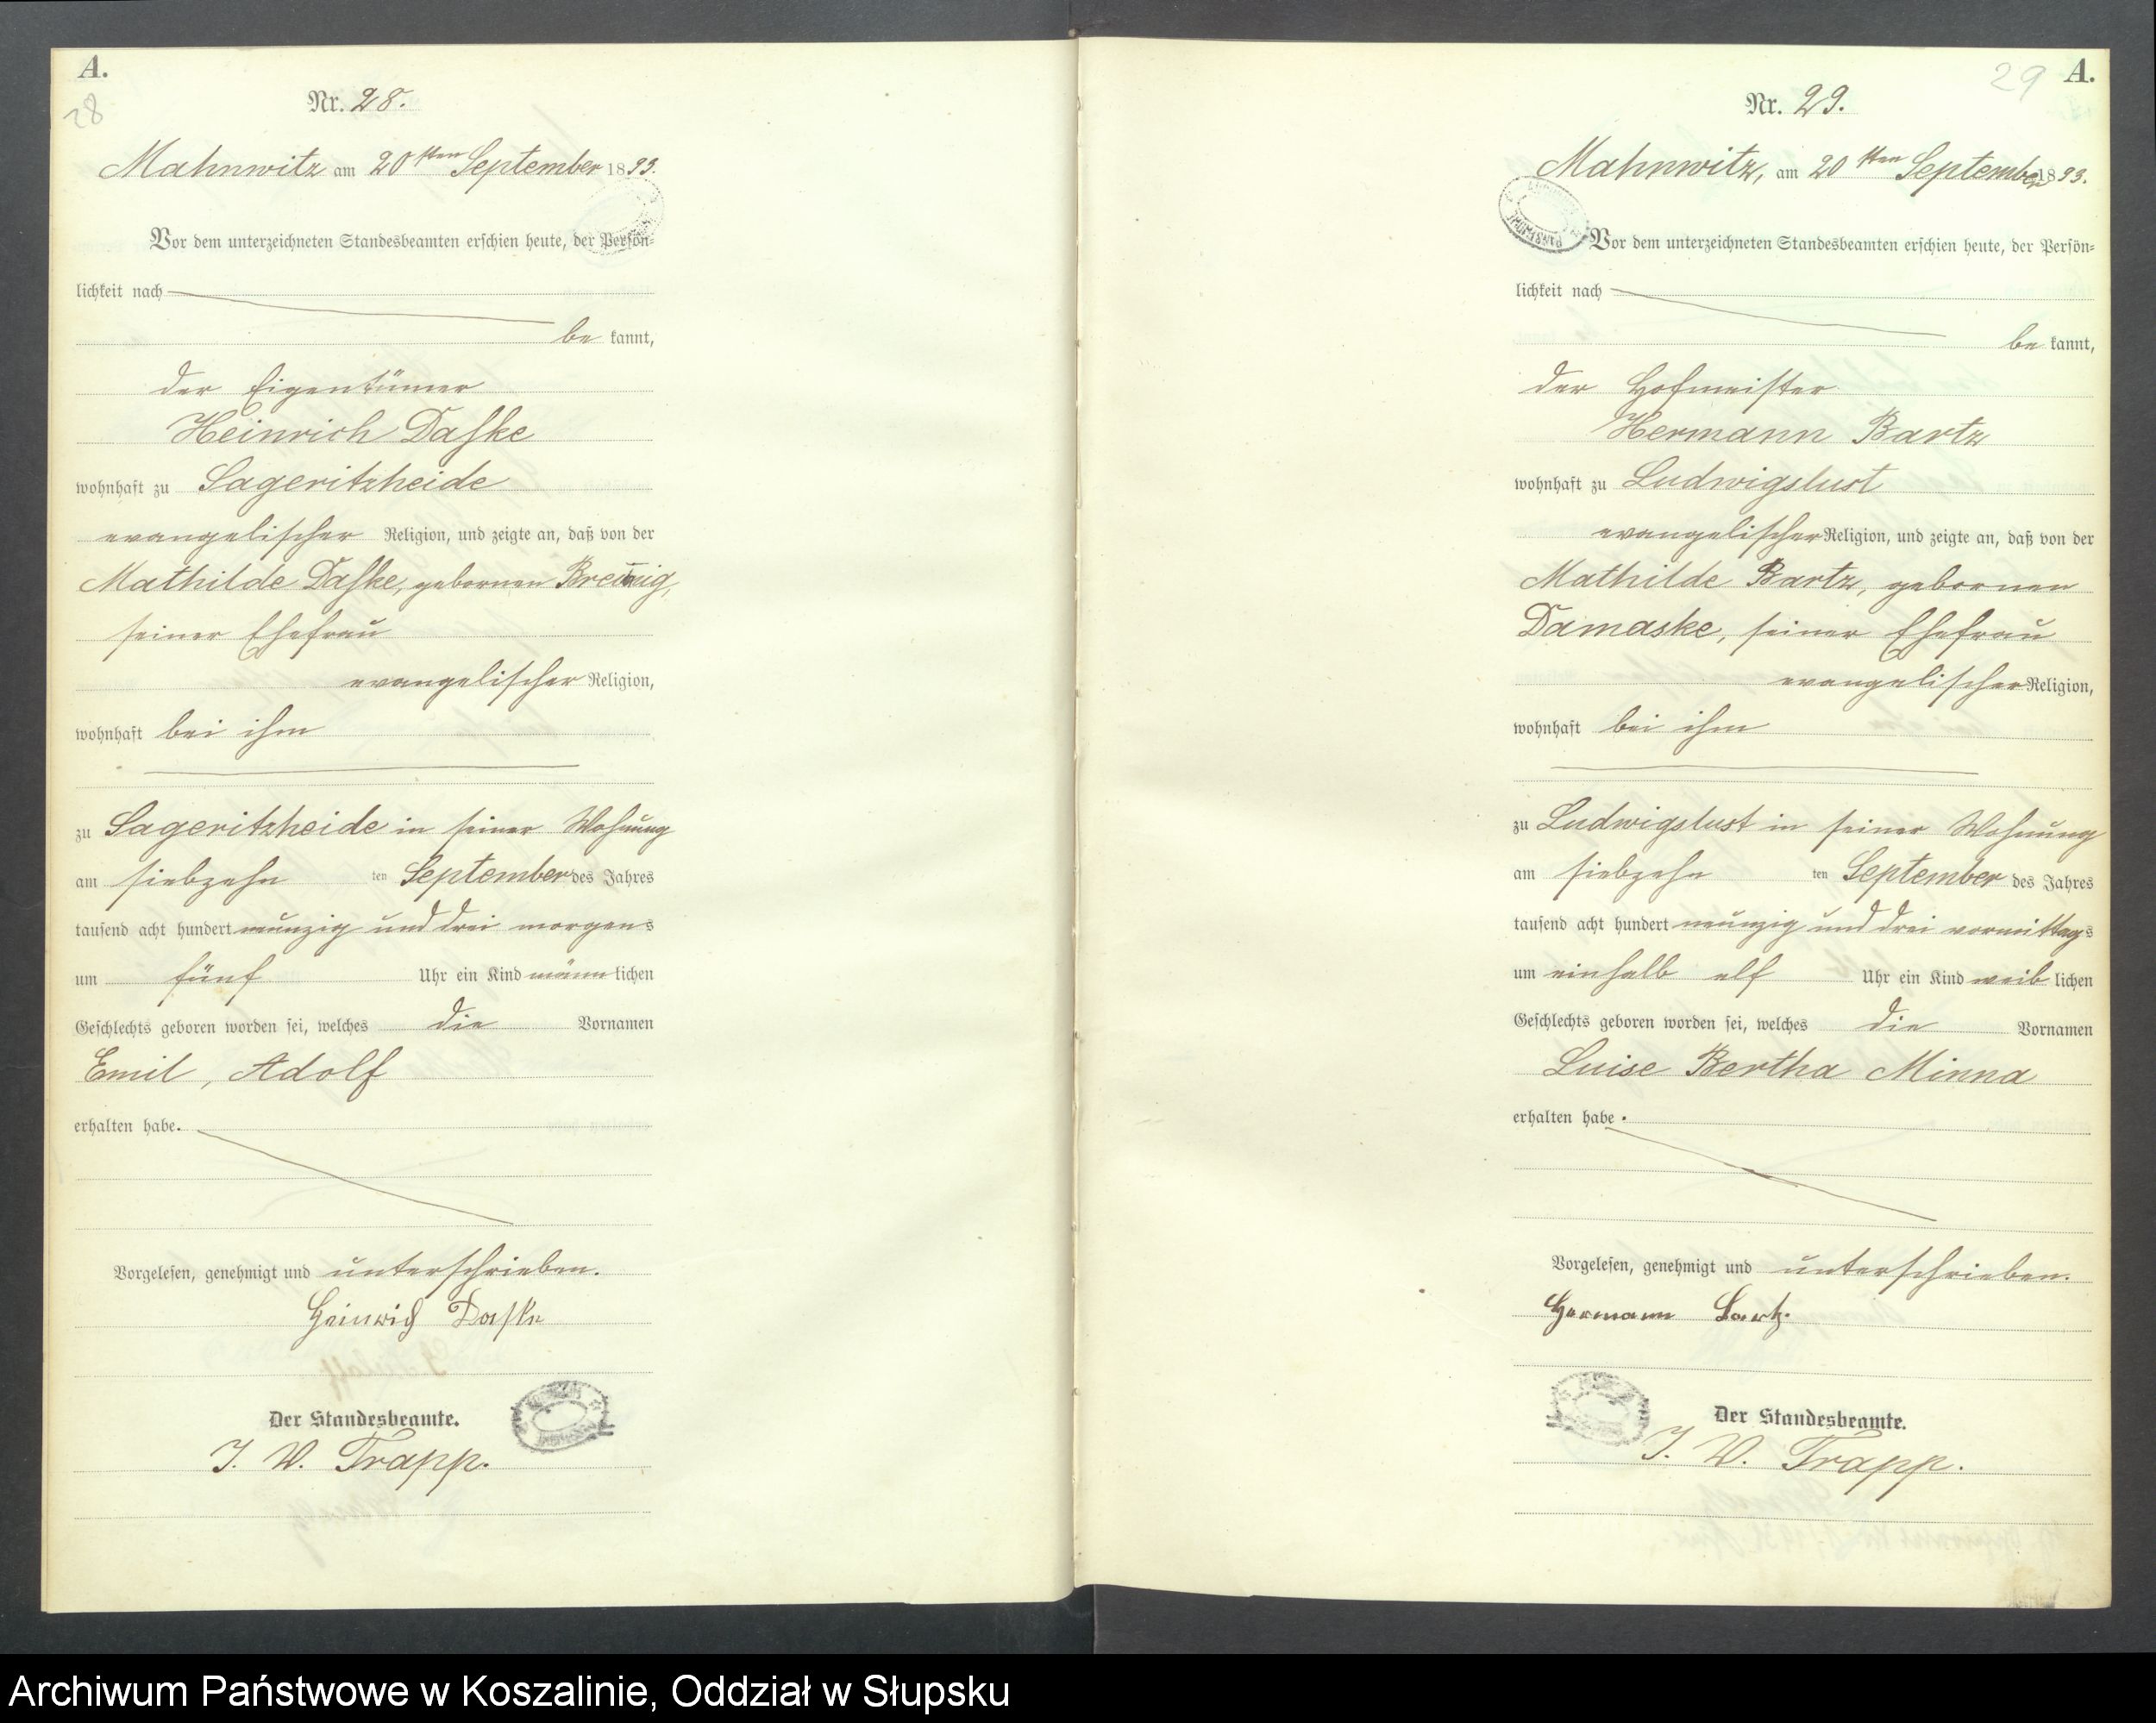 A.
28
Nr. 28.
Mahnwitz am 20sten September 1893.
Vor dem unterzeichneten Standesbeamten erschien heute, der Persön=
lichkeit nach
be kannt,
der Eigentümer
Heinrich Daske
wohnhaft zu Sageritzheide
evangelischer Religion, und zeigte an, daß von der
Mathilde Daske, gebornen
seiner Ehefrau
evangelischer Religion,
wohnhaft bei ihm
zu Sageritzheide in seiner Wohnung
am siebzehn ten September des Jahres
tausend acht hundert neunzig und drei morgens
um fünf Uhr ein Kind männlichen
Geschlechts geboren worden sei, welches die Vornamen
Emil, Adolf
erhalten habe.
Vorgelesen, genehmigt und unterschrieben.
Heinrich Daske
Der Standesbeamte.
I. V. Trapp.
29 A.
Nr. 29.
Mahnwitz, am 20sten September 1893.
Vor dem unterzeichneten Standesbeamten erschien heute, der Persön=
lichkeit nach
be kannt,
der Hofmeister
Hermann Bartz
wohnhaft zu Ludwigslust
evangelischer Religion, und zeigte an, daß von der
Mathilde Bartz, gebornen
Damaske, seiner Ehefrau
evangelischer Religion,
wohnhaft bei ihm
zu Ludwigslust in seiner Wohnung
am siebzehn ten September des Jahres
tausend acht hundert neunzig und drei vormittags
um einhalb elf Uhr ein Kind weib lichen
Geschlechts geboren worden sei, welches die Vornamen
Luise Bertha Minna
erhalten habe.
Vorgelesen, genehmigt und unterschrieben.
Hermann Bartz.
Der Standesbeamte.
I. V. Trapp.
Archiwum Państwowe w Koszalinie, Oddział w Słupsku